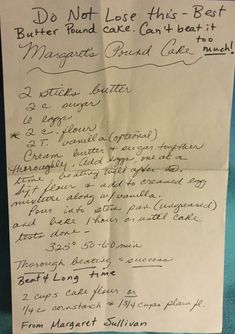 Do Not Lose this - Best
Butter Pound cake. Can't beat it
too
much!
Margaret's Pound Cake
2 sticks butter
2 c sugar
6 eggs
* 2 c. flour
2 T. vanilla (optional)
Cream butter & sugar together
thoroughly. Add eggs, one at a
time, beating well after ea.
Sift flour & add to creamed egg
mixture along w/ vanilla.
Pour into stem pan (ungreased)
and bake 1 hour or until cake
tests done -
325° 50-60 min
Thorough beating = success
Beat 4 Long time
2 cups cake flour or
1/4 c cornstarch & 1 3/4 cups plain fl.
From Margaret Sullivan